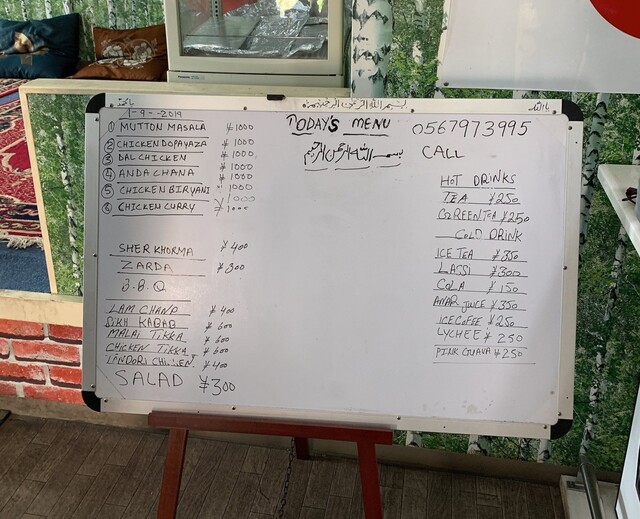 بسم الله الرحمن الرحيم
1-9--2019
TODAY'S MENU
0567973995
بسم الله الرحمن الرحيم
CALL
① MUTTON MASALA ¥1000
② CHICKEN DOPAYAZA ¥1000
③ DAL CHICKEN ¥1000
④ ANDA CHANA ¥1000
⑤ CHICKEN BIRYANI ¥1000
⑥ CHICKEN CURRY ¥1000
SHER KHORMA ¥400
ZARDA ¥300
B.B.Q
LAM CHANP ¥400
SIKH KABAB ¥600
MALAI TIKKA ¥600
CHICKEN TIKKA ¥600
TANDORI CHICKEN ¥400
SALAD ¥300
HOT DRINKS
TEA ¥250
GREEN TEA ¥250
COLD DRINK
ICE TEA ¥350
LASSI ¥300
COLA ¥150
ANAR JUICE ¥350
ICE COFEE ¥250
LYCHEE ¥250
PINK GUAVA ¥250